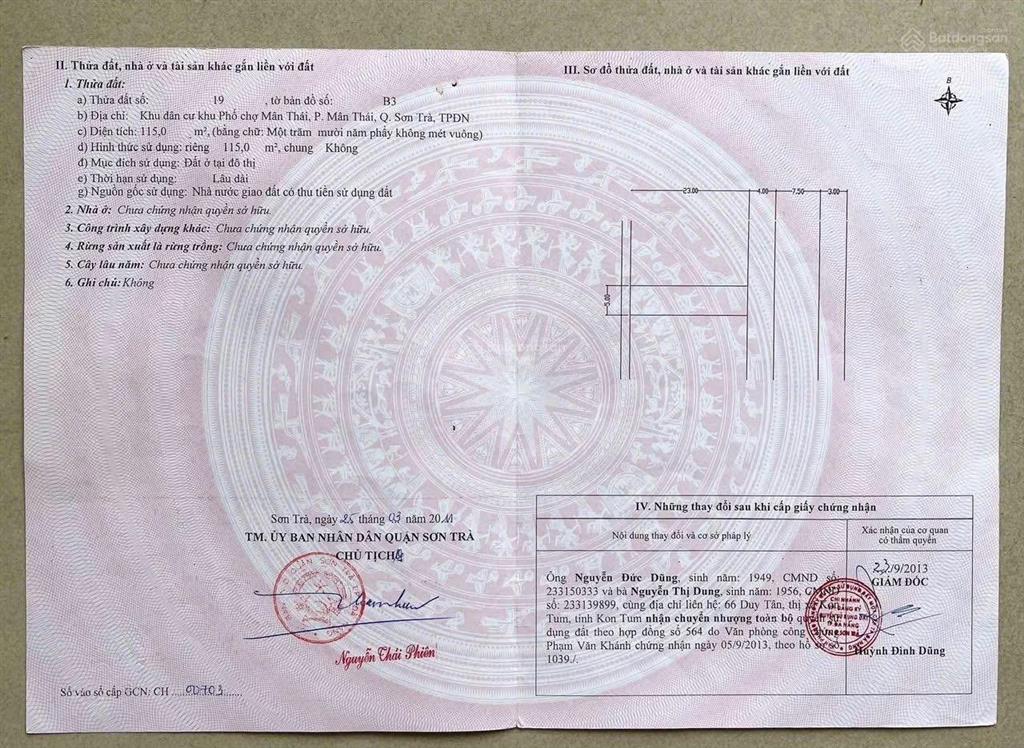 Batdongsan
II. Thửa đất, nhà ở và tài sản khác gắn liền với đất
1. Thửa đất:
a) Thửa đất số: 19 , tờ bản đồ số: B3
b) Địa chỉ: Khu dân cư khu Phố chợ Mân Thái, P. Mân Thái, Q. Sơn Trà, TPĐN
c) Diện tích: 115,0 m², (bằng chữ: Một trăm mười năm phẩy không mét vuông)
d) Hình thức sử dụng: riêng 115,0 m², chung Không
đ) Mục đích sử dụng: Đất ở tại đô thị
e) Thời hạn sử dụng: Lâu dài
g) Nguồn gốc sử dụng: Nhà nước giao đất có thu tiền sử dụng đất
2. Nhà ở: Chưa chứng nhận quyền sở hữu.
3. Công trình xây dựng khác: Chưa chứng nhận quyền sở hữu.
4. Rừng sản xuất là rừng trồng: Chưa chứng nhận quyền sở hữu.
5. Cây lâu năm: Chưa chứng nhận quyền sở hữu.
6. Ghi chú: Không
Sơn Trà, ngày 25 tháng 03 năm 2011
TM. ỦY BAN NHÂN DÂN QUẬN SƠN TRÀ
CHỦ TỊCH
Nguyễn Thái Phiên
Số vào sổ cấp GCN: CH ....00703......
III. Sơ đồ thửa đất, nhà ở và tài sản khác gắn liền với đất
B
23.00 4.00 7.50 3.00
5.00
IV. Những thay đổi sau khi cấp giấy chứng nhận
Nội dung thay đổi và cơ sở pháp lý
Xác nhận của cơ quan
có thẩm quyền
Ông Nguyễn Đức Dũng, sinh năm: 1949, CMND số:
233150333 và bà Nguyễn Thị Dung, sinh năm: 1956, CMND
số: 233139899, cùng địa chỉ liên hệ: 66 Duy Tân, thị xã Kon
Tum, tỉnh Kon Tum nhận chuyển nhượng toàn bộ quyền sử
dụng đất theo hợp đồng số 564 do Văn phòng công
Phạm Văn Khánh chứng nhận ngày 05/9/2013, theo hồ sơ
1039./.
23/9/2013
GIÁM ĐỐC
CHI NHÁNH
TP ĐÀ NẴNG
Huỳnh Đình Dũng